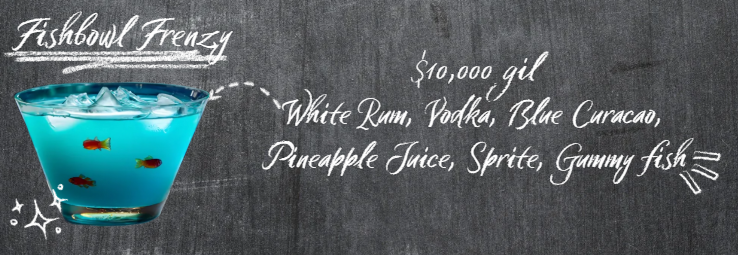 Fishbowl Frenzy
$10,000 gil
White Rum, Vodka, Blue Curacao,
Pineapple Juice, Sprite, Gummy fish